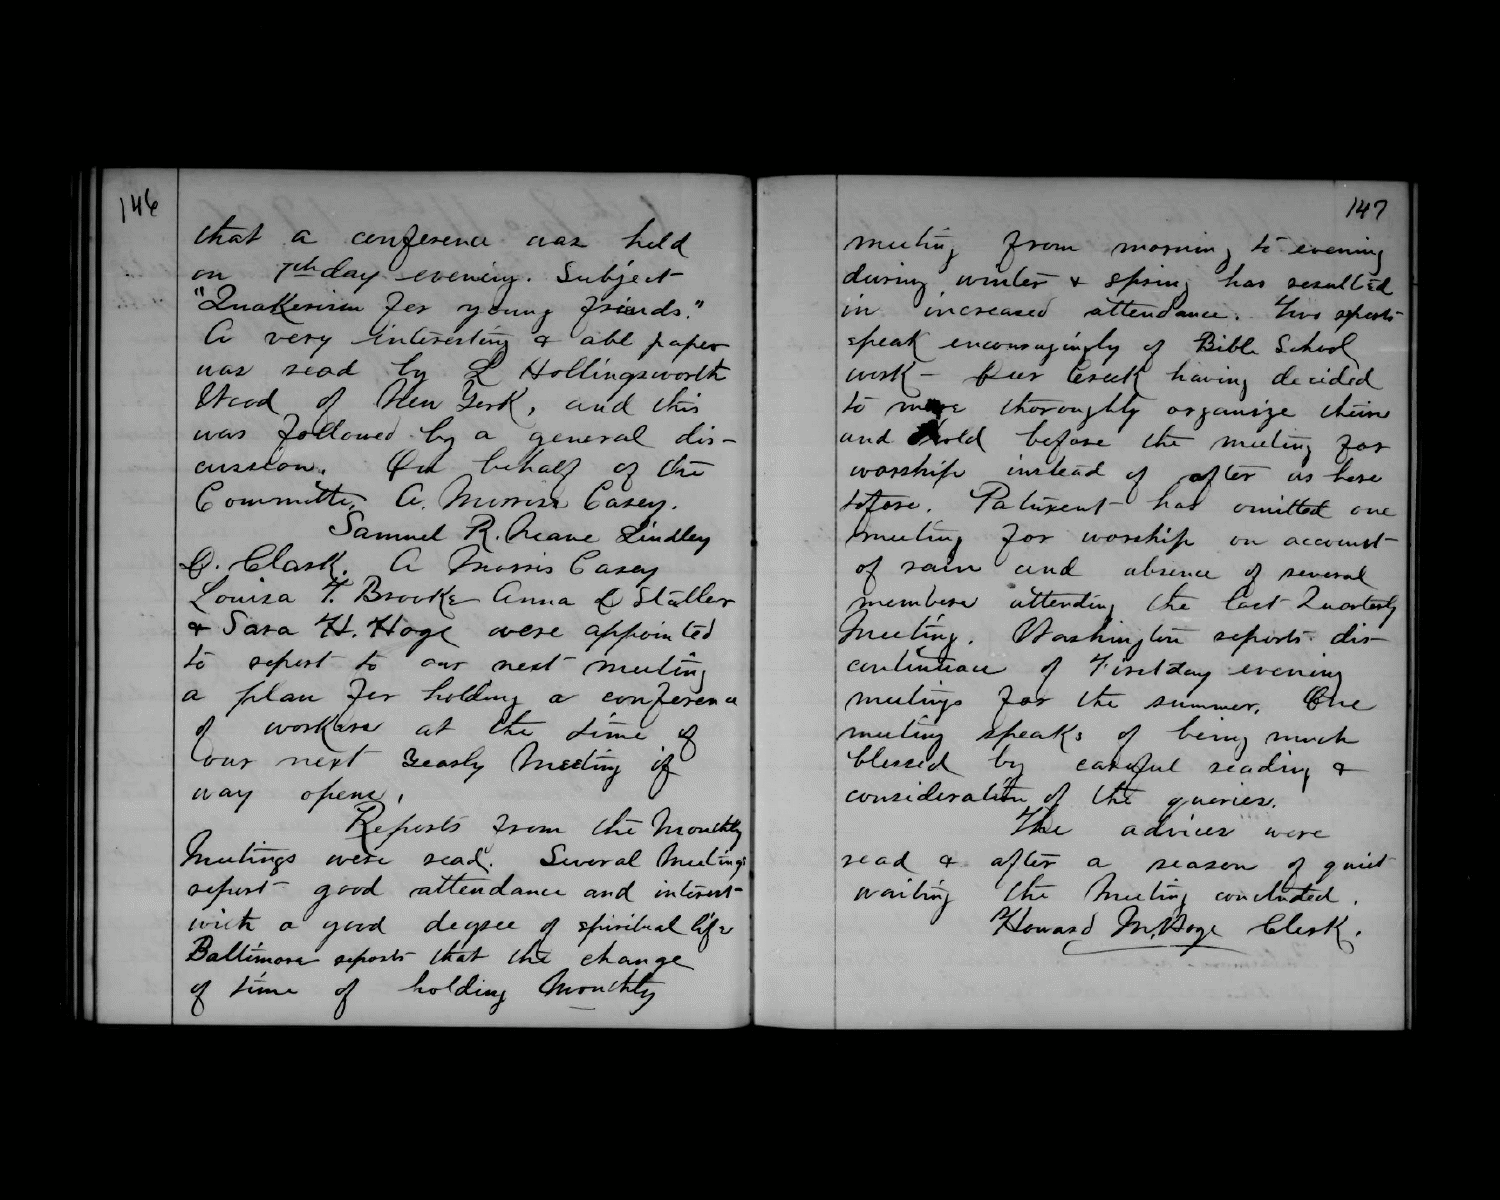 146
that a conference was held
on 7th day evening. Subject
"Quakerism for young friends."
A very interesting & abl paper
was read by L Hollingsworth
Wood of New York, and this
was followed by a general dis-
cussion. On behalf of the
Committe, A. Morris Casey.
Samuel R. Neave Lindley
D. Clark. A Morris Casey
Louisa T. Brooke Anna L Stabler
& Sara H. Hoge were appointed
to report to our next meeting
a plan for holding a conference
of workers at the time of
our next Yearly Meeting if
way opens.
Reports from the Monthly
Meetings were read. Several Meetings
report good attendance and interest
with a good degree of spiritual life
Baltimore reports that the change
of time of holding Monthly
147
meeting from morning to evening
during winter & spring has resulted
in increased attendance. Two reports
speak encouragingly of Bible School
work - Deer Creek having decided
to more thoroughly organize theirs
and hold before the meeting for
worship instead of after as here
tofore. Patuxent has omitted one
meeting for worship on account
of rain and absence of several
members attending the last Quarterly
Meeting. Washington reports dis-
continuance of Firstday evening
meetings for the summer. One
meeting speaks of being much
blessed by careful reading &
consideration of the queries.
The advices were
read & after a season of quiet
waiting the Meeting concluded.
Howard M. Hoge Clerk.